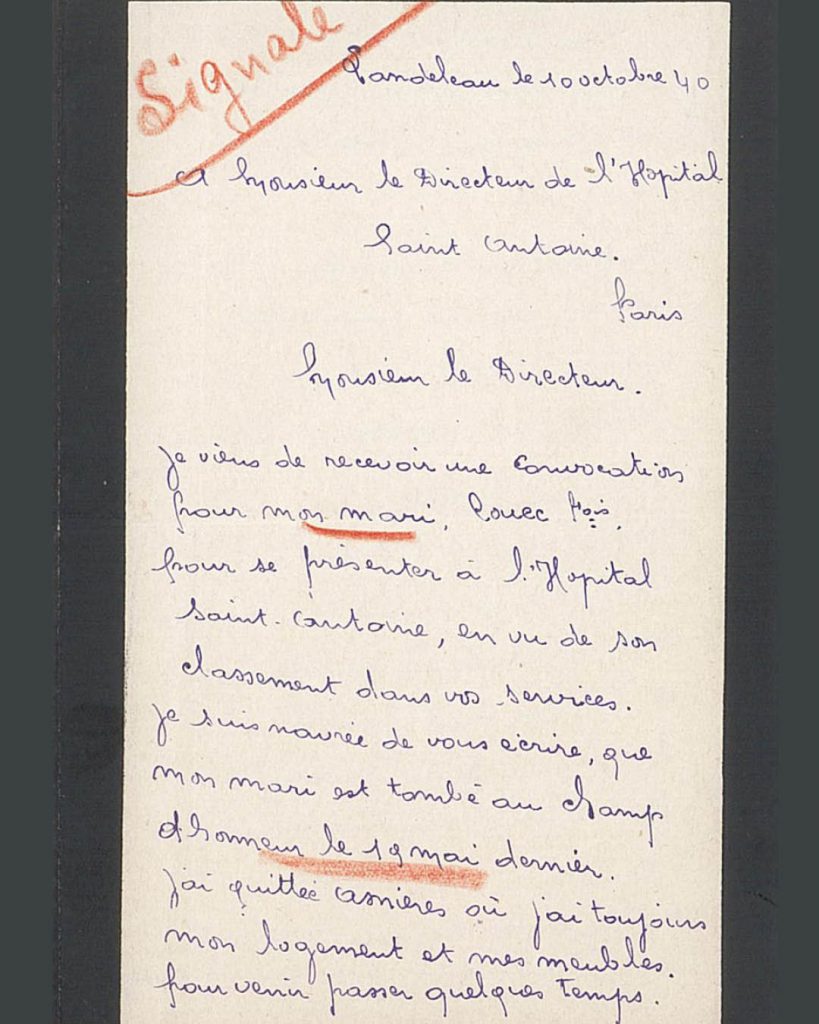 Signalé
Landeleau le 10 octobre 40
A Monsieur le Directeur de l'Hopital
Saint Antoine.
Paris
Monsieur le Directeur.
je viens de recevoir une convocation
pour mon mari, Louec Fois,
pour se présenter à l'Hopital
Saint-Antoine, en vu de son
classement dans vos services.
je suis navrée de vous écrire, que
mon mari est tombé au champ
d'honneur le 19 mai dernier.
j'ai quittée Asnières où j'ai toujours
mon logement et mes meubles.
pour venir passer quelques temps.